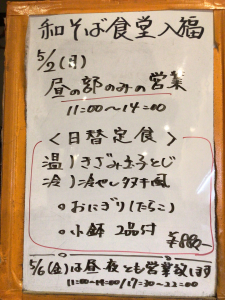 和そば食堂入福
5/2(月)
昼の部のみの営業
11:00〜14:00
<日替定食>
温)きざみ玉子とじ
冷)冷やしタヌキ風
。おにぎり(たらこ)
。小鉢 2品付
¥880-
5/6(金)は昼・夜とも営業致します
11:00〜14:00/17:30〜22:00